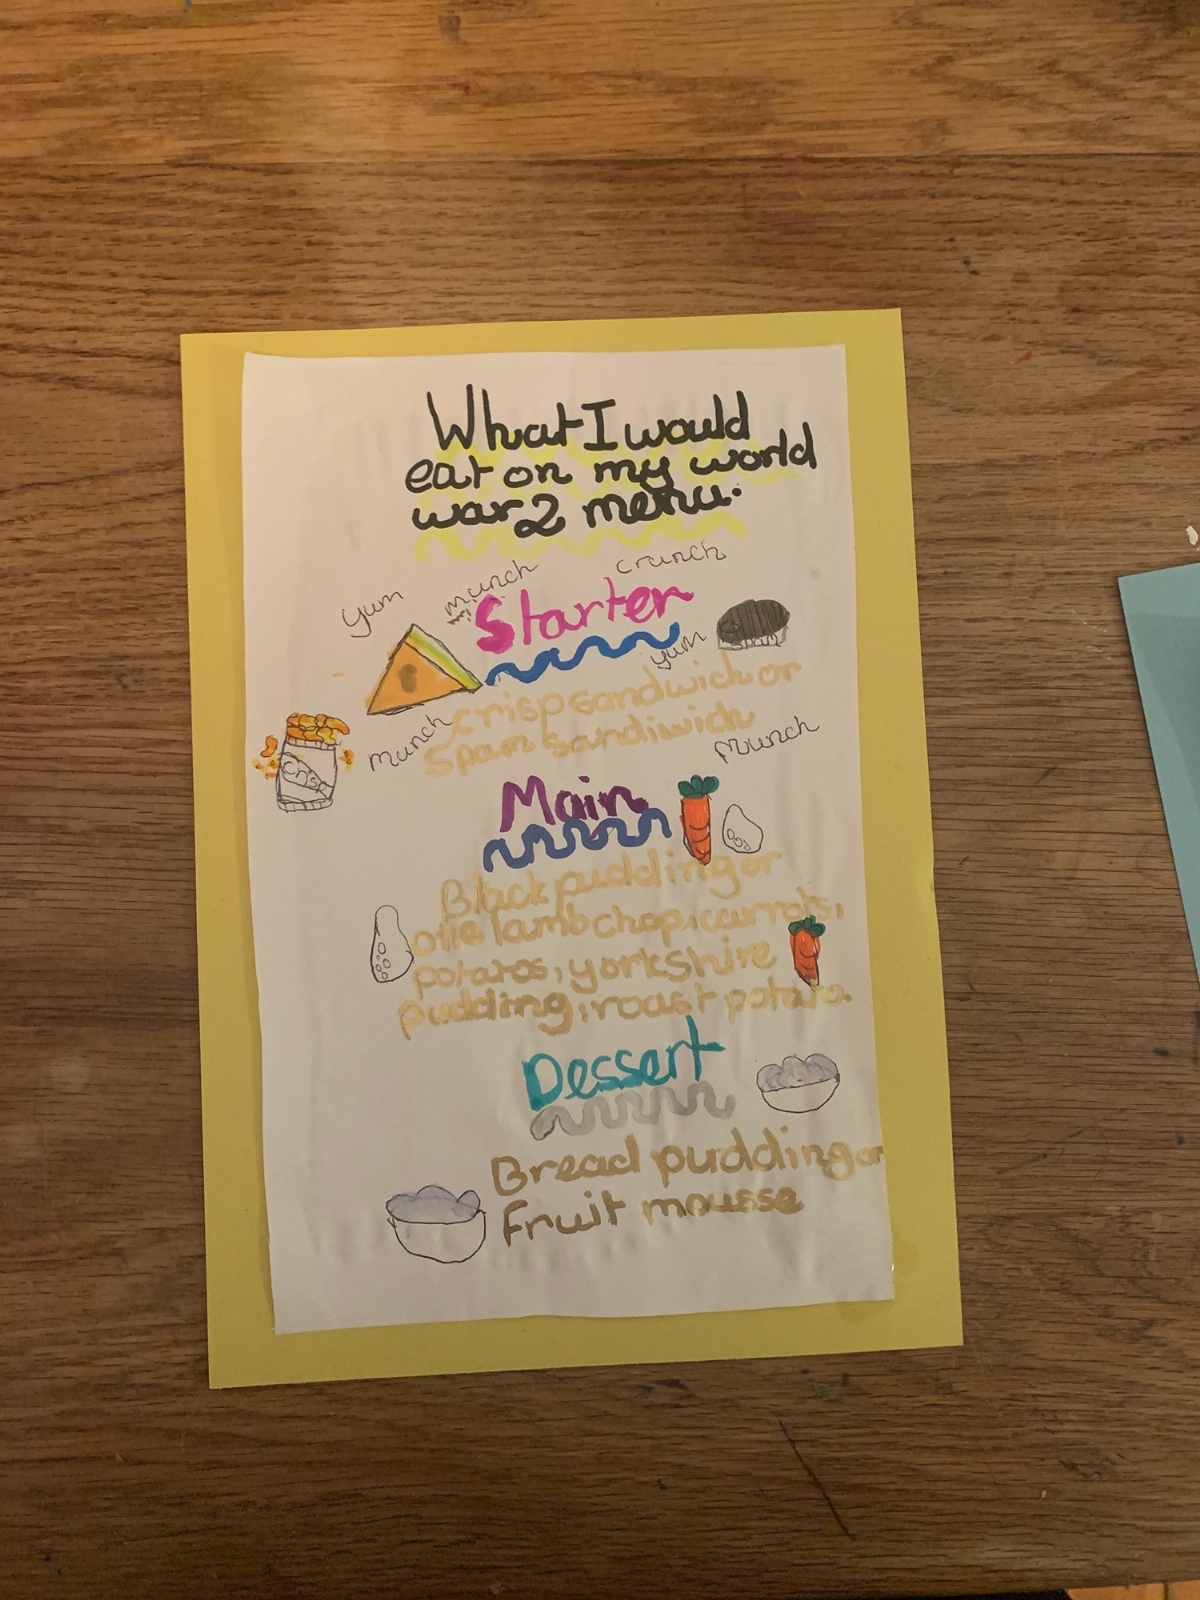 What I would
eat on my world
war 2 menu.
yum munch crunch
Starter
yum
Spam
crisp sandwich or
Spam Sandiwich
munch
Munch
Crisp
Main
Black pudding or
one lamb chop, carrots,
potatos, yorkshire
pudding, roast potato.
Dessert
Bread pudding or
Fruit mousse